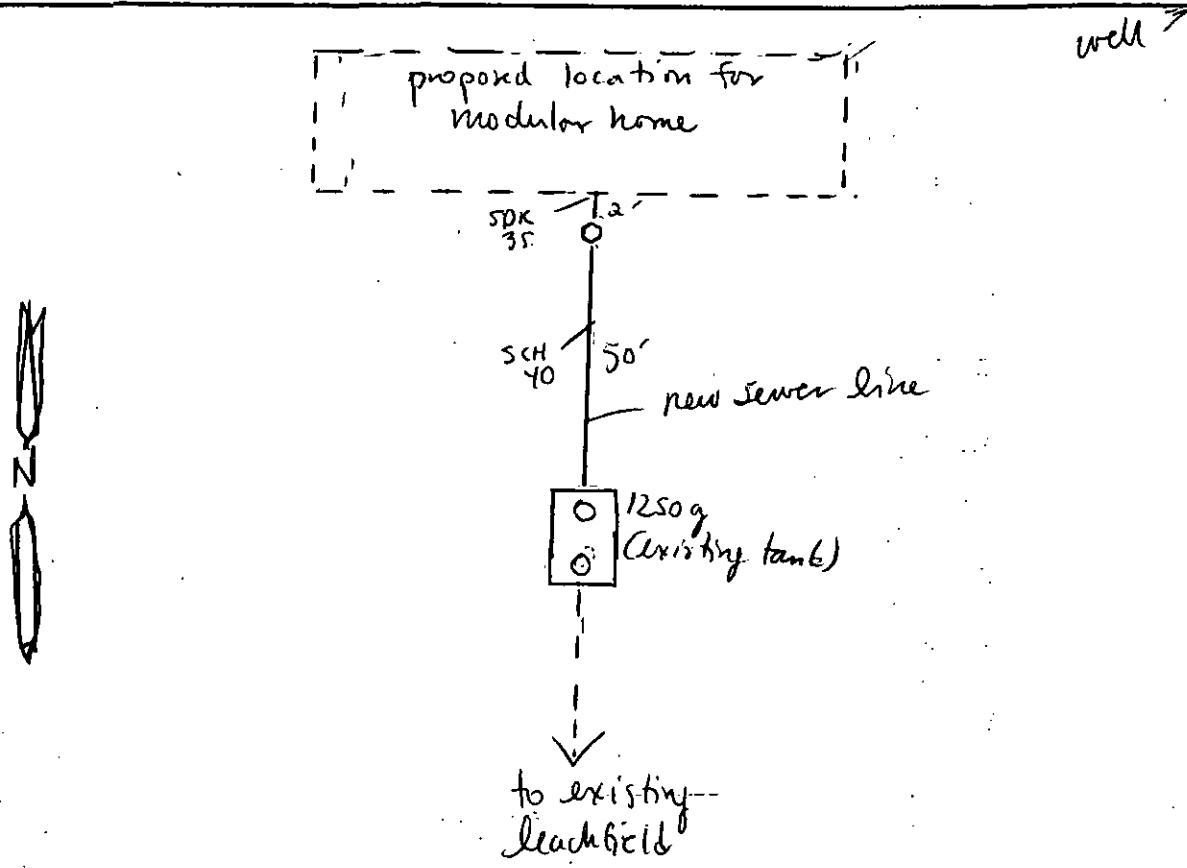 well
proposed location for
modular home
SDR
35
2'
SCH
40
50'
new sewer line
N
1250g
(existing tank)
to existing
leachfield